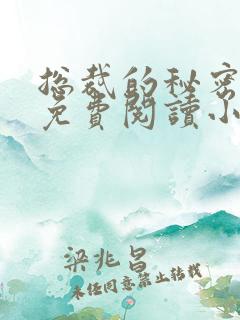 总裁的秘密
免費閱讀小
梁兆昌
未经同意禁止转载